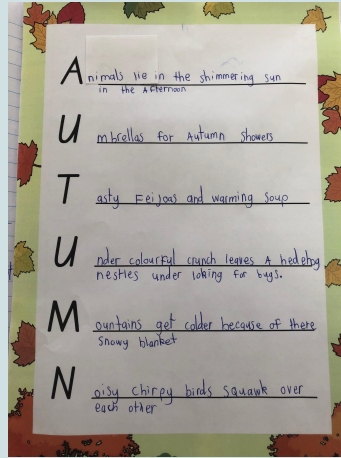 Animals lie in the shimmering sun
in the Afternoon
Umbrellas for Autumn showers
Tasty Feijoas and warming soup
Under colourful crunch leaves A hedehog
nestles under loking for bugs.
Mountains get colder because of there
snowy blanket
Noisy chirpy birds squawk over
each other